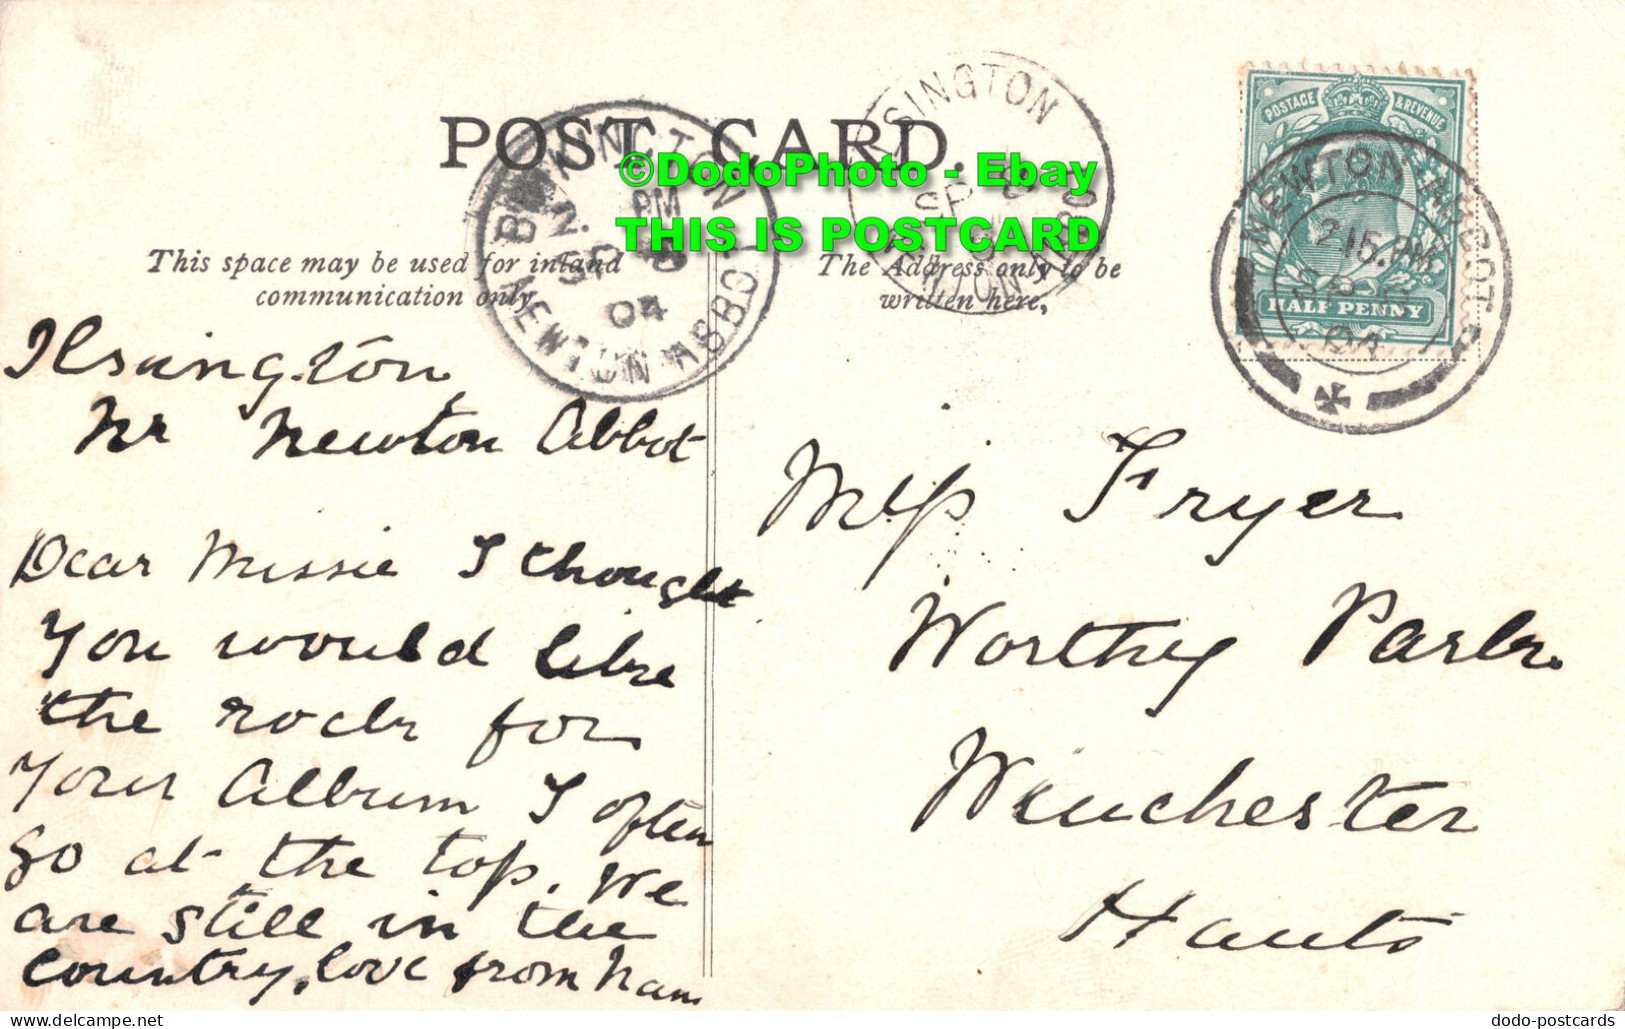 POST CARD.
©DodoPhoto - Ebay
THIS IS POSTCARD
This space may be used for inland
communication only.
The Address only to be
written here,
POSTAGE & REVENUE
HALF PENNY
NEWTON ABBOT
2.15.PM
04
NEWTON ABBOT
PM
04
ILSINGTON
NEWTON ABBOT
Ilsington
Nr Newton Abbot
Dear Missie I thought
you would like
the rock for
your Album I often
go at the top. We
are still in the
country, love from Nam
Miss Fryer
Worthy Park.
Winchester
Hants
dodo-postcards
www.delcampe.net